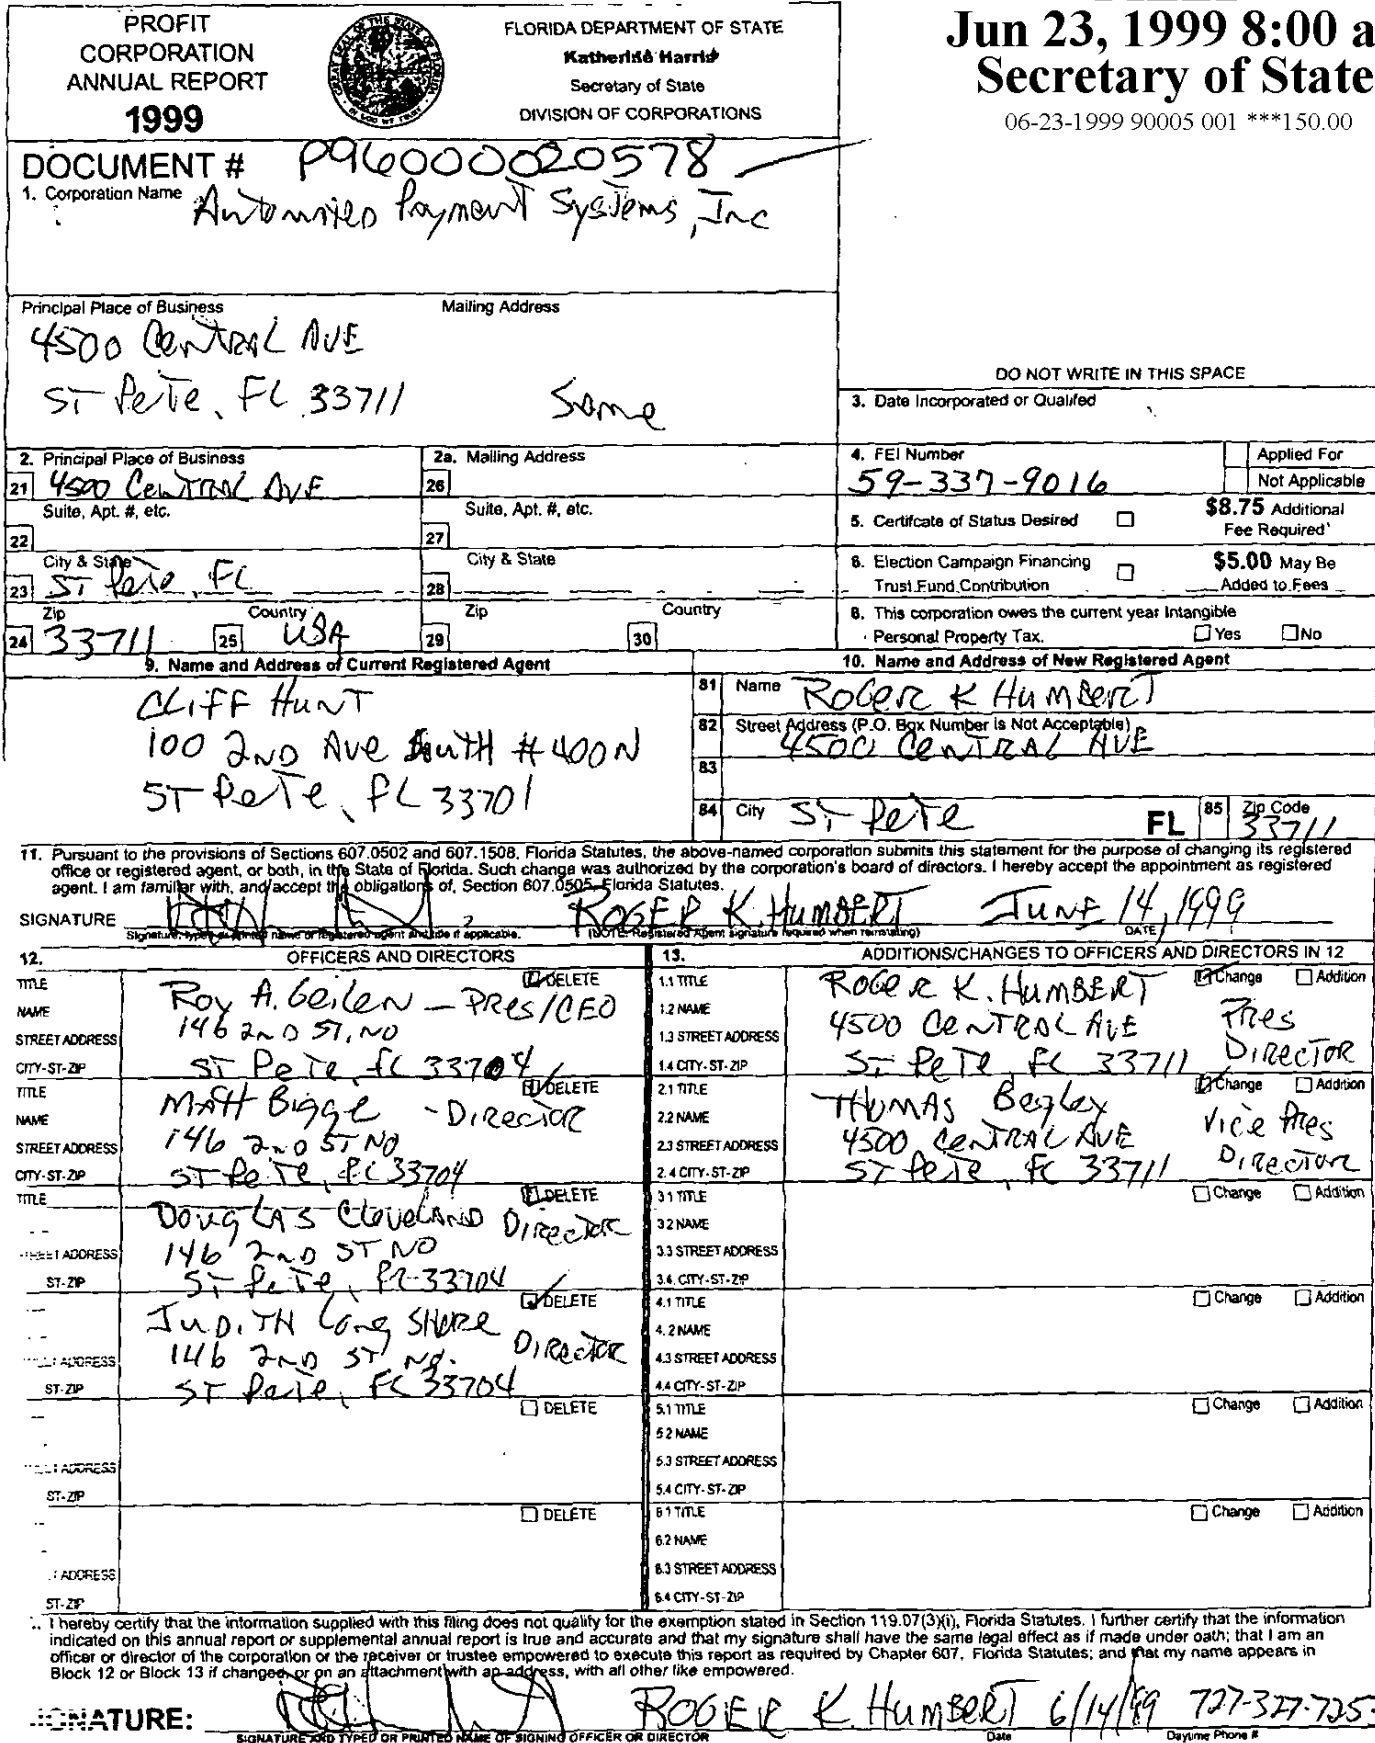 PROFIT
CORPORATION
ANNUAL REPORT
1999
FLORIDA DEPARTMENT OF STATE
Katherine Harris
Secretary of State
DIVISION OF CORPORATIONS
Jun 23, 1999 8:00 a
Secretary of State
06-23-1999 90005 001 ***150.00
DOCUMENT # P96000020578
1. Corporation Name Automated Payment Systems, Inc
Principal Place of Business Mailing Address
4500 Central Ave
St Pete, FL 33711 Same
DO NOT WRITE IN THIS SPACE
3. Date Incorporated or Qualifed
2. Principal Place of Business 2a. Mailing Address
21 4500 Central Ave 26
Suite, Apt. #, etc. Suite, Apt. #, etc.
22 27
City & State City & State
23 St Pete, FL 28
Zip Country Zip Country
24 33711 25 USA 29 30
4. FEI Number Applied For
59-337-9016 Not Applicable
5. Certifcate of Status Desired $8.75 Additional
Fee Required
6. Election Campaign Financing $5.00 May Be
Trust Fund Contribution Added to Fees
8. This corporation owes the current year Intangible
Personal Property Tax. Yes No
9. Name and Address of Current Registered Agent
Cliff Hunt
100 2nd Ave South #400N
St Pete, FL 33701
10. Name and Address of New Registered Agent
81 Name Roger K Humbert
82 Street Address (P.O. Box Number is Not Acceptable)
4500 Central Ave
83
84 City St Pete FL 85 Zip Code
33711
11. Pursuant to the provisions of Sections 607.0502 and 607.1508, Florida Statutes, the above-named corporation submits this statement for the purpose of changing its registered
office or registered agent, or both, in the State of Florida. Such change was authorized by the corporation's board of directors. I hereby accept the appointment as registered
agent. I am familiar with, and accept the obligations of, Section 607.0505, Florida Statutes.
SIGNATURE Roger K. Humbert June 14, 1999
Signature, typed or printed name of registered agent and title if applicable. (NOTE: Registered Agent signature required when reinstating) DATE
12. OFFICERS AND DIRECTORS
TITLE DELETE
NAME Roy A. Geilen - Pres/CEO
STREET ADDRESS 146 2nd St. No
CITY-ST-ZIP St Pete, FL 33704
TITLE DELETE
NAME Matt Bigge - Director
STREET ADDRESS 146 2nd St No
CITY-ST-ZIP St Pete, FL 33704
TITLE DELETE
Douglas Cleveland Director
ADDRESS 146 2nd St No
ST-ZIP St Pete, FL 33704
DELETE
Judith Long Shore Director
ADDRESS 146 2nd St No.
ST-ZIP St Pete, FL 33704
DELETE
ADDRESS
ST-ZIP
DELETE
ADDRESS
ST-ZIP
13. ADDITIONS/CHANGES TO OFFICERS AND DIRECTORS IN 12
1.1 TITLE Change Addition
1.2 NAME Roger K. Humbert Pres
1.3 STREET ADDRESS 4500 Central Ave Director
1.4 CITY-ST-ZIP St Pete, FL 33711
2.1 TITLE Change Addition
2.2 NAME Thomas Begley Vice Pres
2.3 STREET ADDRESS 4500 Central Ave Director
2.4 CITY-ST-ZIP St Pete, FL 33711
3.1 TITLE Change Addition
3.2 NAME
3.3 STREET ADDRESS
3.4. CITY-ST-ZIP
4.1 TITLE Change Addition
4.2 NAME
4.3 STREET ADDRESS
4.4 CITY-ST-ZIP
5.1 TITLE Change Addition
5.2 NAME
5.3 STREET ADDRESS
5.4 CITY-ST-ZIP
6.1 TITLE Change Addition
6.2 NAME
6.3 STREET ADDRESS
6.4 CITY-ST-ZIP
I hereby certify that the information supplied with this filing does not qualify for the exemption stated in Section 119.07(3)(i), Florida Statutes. I further certify that the information
indicated on this annual report or supplemental annual report is true and accurate and that my signature shall have the same legal effect as if made under oath; that I am an
officer or director of the corporation or the receiver or trustee empowered to execute this report as required by Chapter 607, Florida Statutes; and that my name appears in
Block 12 or Block 13 if changed, or on an attachment with an address, with all other like empowered.
SIGNATURE: Roger K. Humbert 6/14/99 727-327-725
SIGNATURE AND TYPED OR PRINTED NAME OF SIGNING OFFICER OR DIRECTOR Date Daytime Phone #